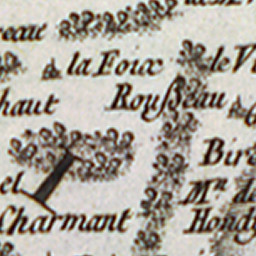 eau
la Foix
le Vi
haut
Rousseau
Bird
el
M.n de
Charmant
Hondy